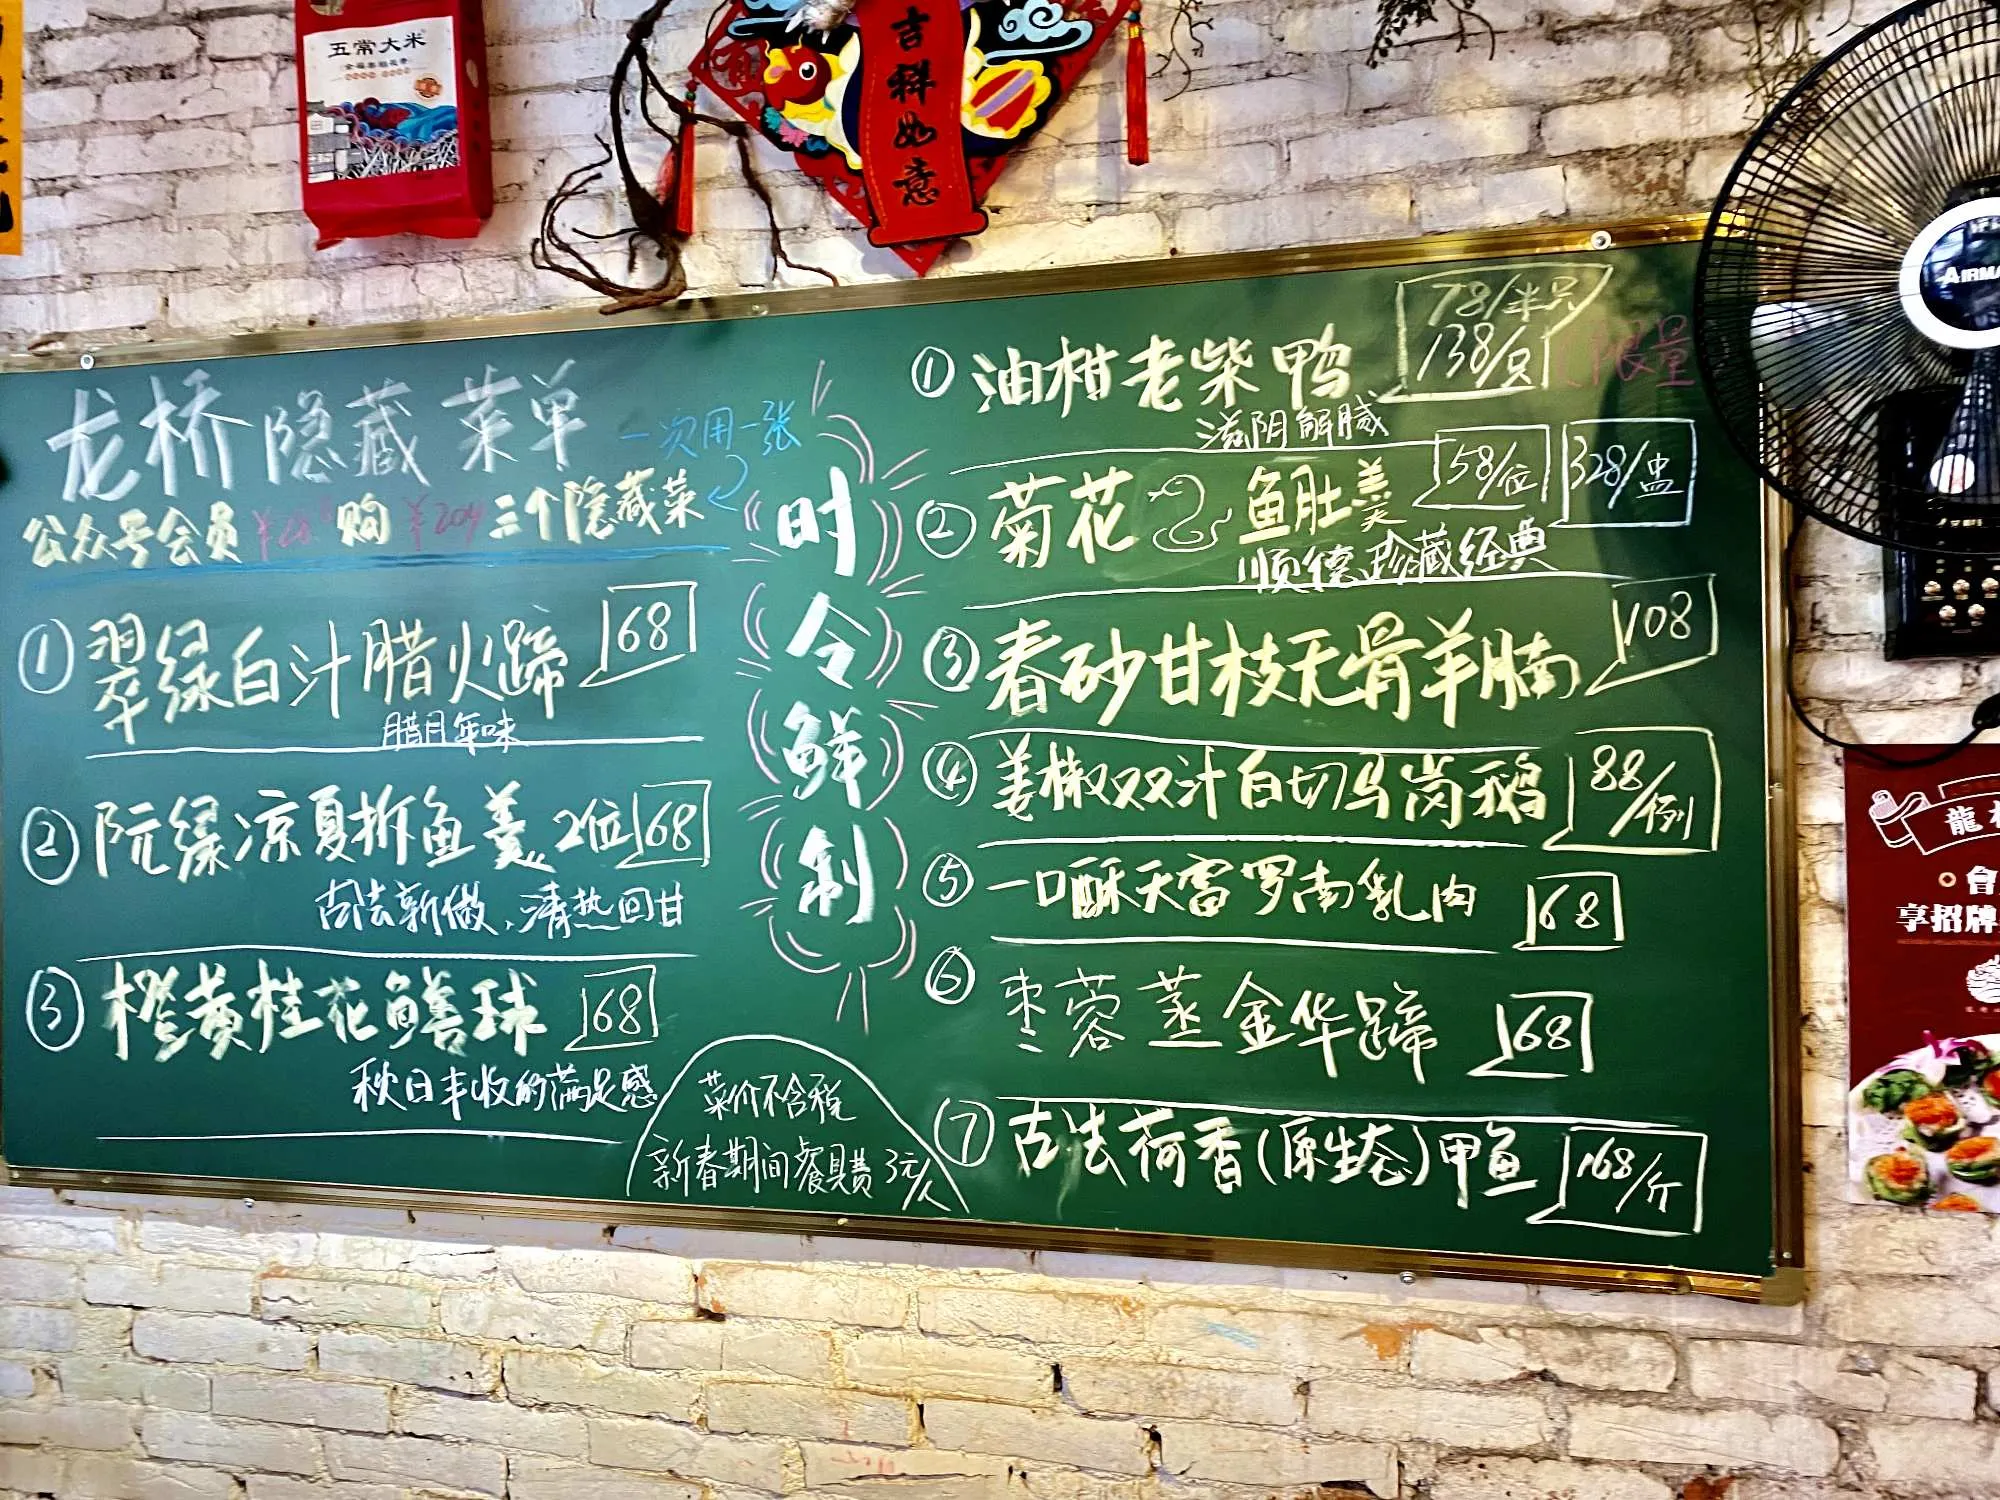 五常大米
吉祥如意
龙桥隐藏菜单
一次用一张
公众号会员 购 ¥204 三个隐藏菜
① 翠绿白汁腊火蹄 168
腊月年味
② 阮绿凉夏拆鱼羹 2位 168
古法新做,清热回甘
③ 橙黄桂花鳝球 168
秋日丰收的满足感
菜价不含税
新春期间餐具费3元/人
时令鲜制
① 油柑老柴鸭 78/半只
138/只 限量
滋阴解腻
② 菊花 鱼肚羹 58/位 328/盅
顺德珍藏经典
③ 春砂甘枝无骨羊腩 108
④ 姜椒双汁白切马岗鹅 88/例
⑤ 一口酥天富罗南乳肉 168
⑥ 枣蓉蒸金华蹄 168
⑦ 古法荷香(原生态)甲鱼 168/斤
AIRMA
龍
會
享招牌